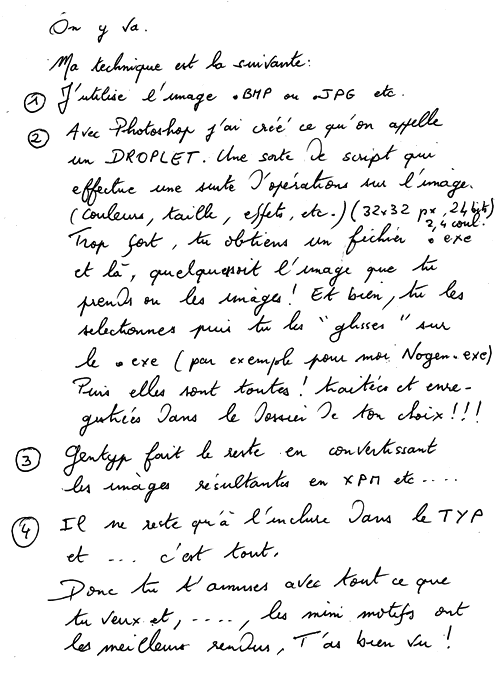 On y va.
Ma technique est la suivante:
① J'utilise l'image .BMP ou .JPG etc.
② Avec Photoshop j'ai créé ce qu'on appelle
un DROPLET. Une sorte de script qui
effectue une suite d'opérations sur l'image.
(couleurs, taille, effets, etc.) (32x32 px, 24 bits)
2,4 coul.
Trop fort, tu obtiens un fichier .exe
et là, quelquesoit l'image que tu
prends ou les images! Et bien, tu les
selectionnes puis tu les "glisses" sur
le .exe (par exemple pour moi Nogen.exe)
Puis elles sont toutes! traitées et enre-
gistrées dans le dossier de ton choix!!!
③ Gentyp fait le reste en convertissant
les images résultantes en XPM etc ....
④ Il ne reste qu'à l'inclure dans le TYP
et ... c'est tout.
Donc tu t'amuses avec tout ce que
tu veux et, ...., les mini motifs ont
les meilleurs rendus, T'as bien vu!